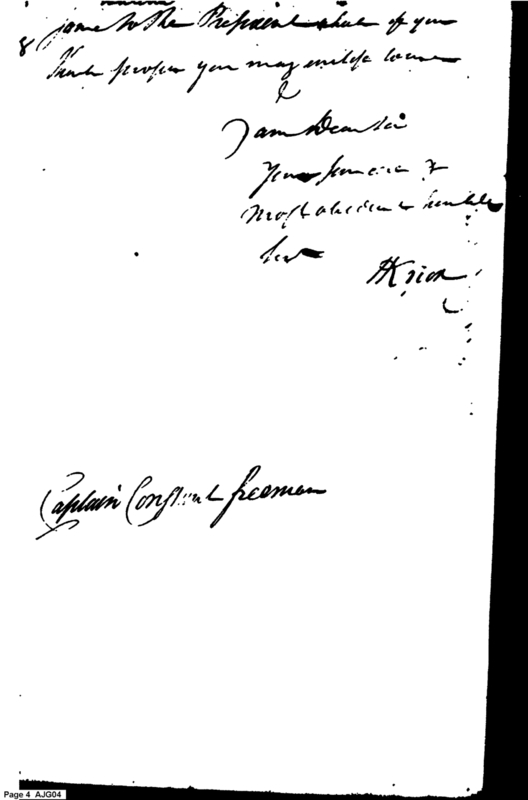 same to the President that if you
think proper you may enclose to me
&
I am Dear Sir
Your sincere &
most obedient humble
Sert
HKnox
Captain Constant freeman
Page 4 AJG04